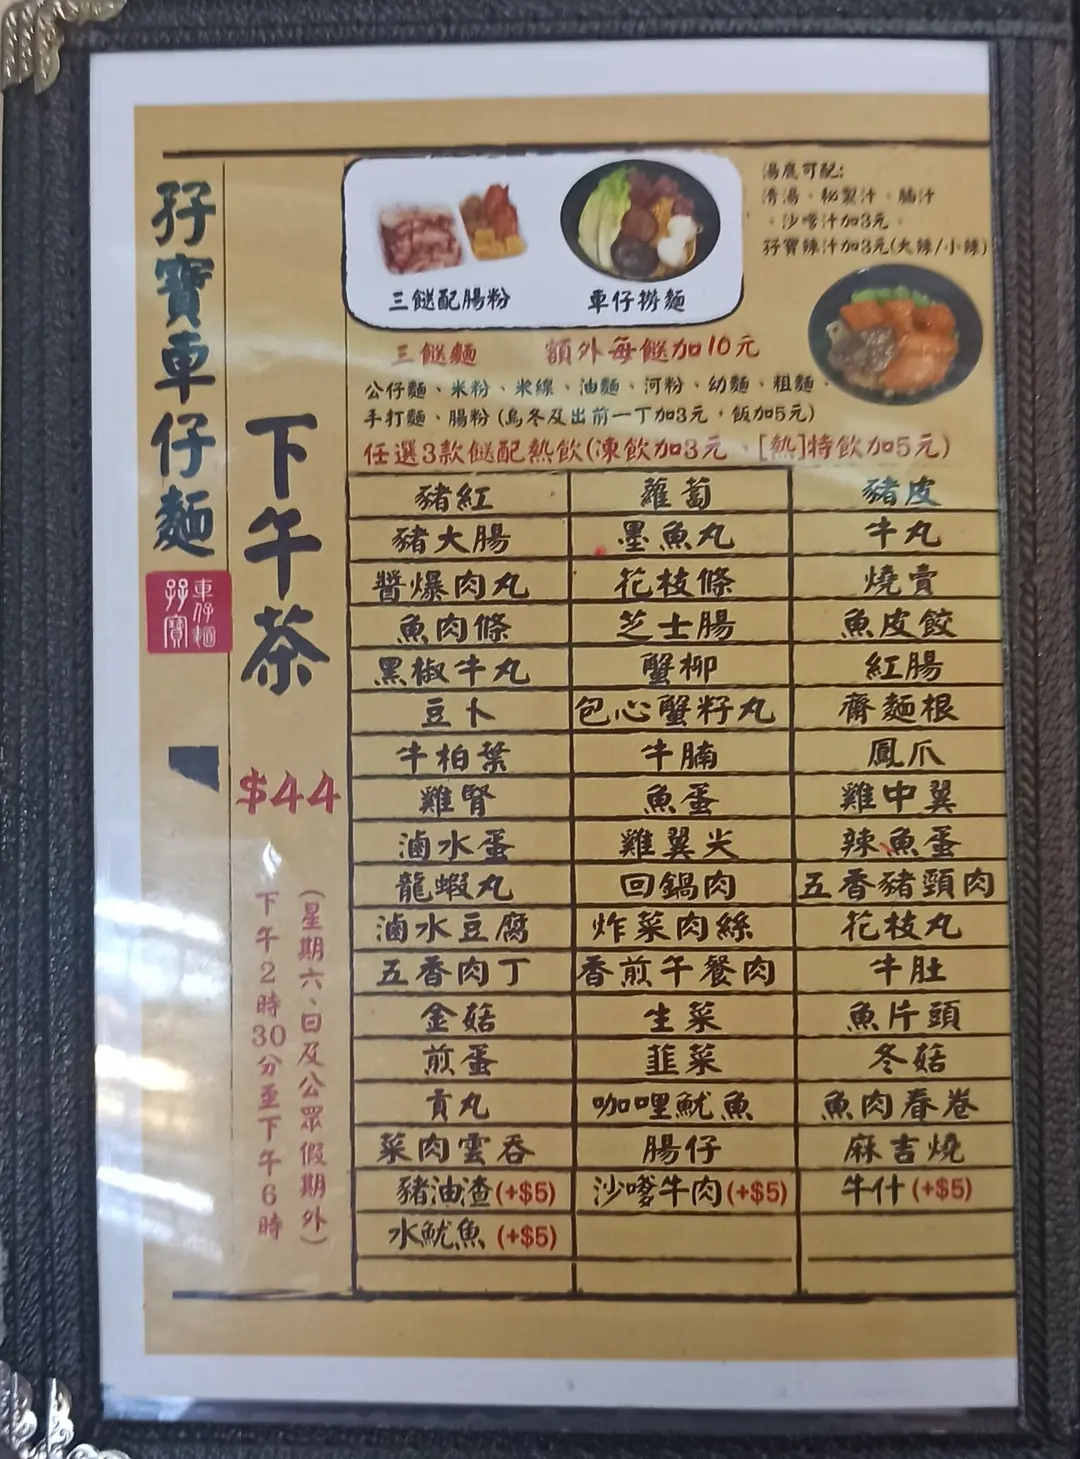 孖寶車仔麵
孖寶
車仔麵
下午茶
$44
(星期六、日及公眾假期外)
下午2時30分至下午6時
三餸配腸粉
車仔撈麵
湯底可配:
清湯、秘製汁、腩汁
、沙嗲汁加3元。
孖寶辣汁加3元(大辣/小辣)
三餸麵 額外每餸加10元
公仔麵、米粉、米線、油麵、河粉、幼麵、粗麵、
手打麵、腸粉(烏冬及出前一丁加3元,飯加5元)
任選3款餸配熱飲(凍飲加3元、[熱]特飲加5元)
豬紅 蘿蔔 豬皮
豬大腸 墨魚丸 牛丸
醬爆肉丸 花枝條 燒賣
魚肉條 芝士腸 魚皮餃
黑椒牛丸 蟹柳 紅腸
豆卜 包心蟹籽丸 齋麵根
牛柏葉 牛腩 鳳爪
雞腎 魚蛋 雞中翼
滷水蛋 雞翼尖 辣魚蛋
龍蝦丸 回鍋肉 五香豬頸肉
滷水豆腐 炸菜肉絲 花枝丸
五香肉丁 香煎午餐肉 牛肚
金菇 生菜 魚片頭
煎蛋 韮菜 冬菇
貢丸 咖哩魷魚 魚肉春卷
菜肉雲吞 腸仔 麻吉燒
豬油渣(+$5) 沙嗲牛肉(+$5) 牛什(+$5)
水魷魚(+$5)